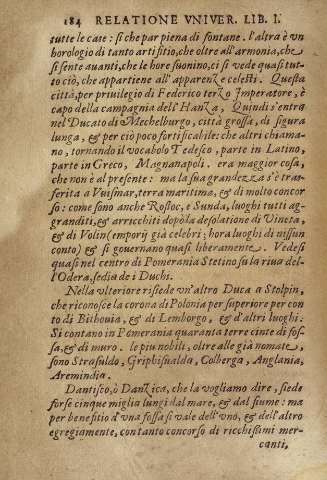 184 RELATIONE VNIVER. LIB. I.
tutte le case: si che par piena di fontane. l'altra è vn
horologio di tanto artifitio, che oltre all'armonia, che
si sente auanti, che le hore suonino, ci si vede quasi tut-
to ciò, che appartiene all'apparenze celesti. Questa
città, per priuilegio di Federico terzo Imperatore, è
capo della campagna dell'Hanza, Quindi s'entra
nel Ducato di Mechelburgo, città grossa, di figura
lunga, & per ciò poco fortificabile: che altri chiama-
no, tornando il vocabolo Tedesco, parte in Latino,
parte in Greco, Magnanapoli. era maggior cosa,
che non è al presente: ma la sua grandezza s'è tras-
ferita a Vuismar, terra maritima, & di molto concor
so: come sono anche Rostoc, e Sunda, luoghi tutti ag-
granditi, & arricchiti dopò la desolatione di Vineta,
& di Volin (emporij già celebri; hora luoghi di nissun
conto) & si gouernano quasi liberamente. Vedesi
quasi nel centro di Pomerania Stetino su la riua del-
l'Odera, sedia de i Duchi.
Nella vlteriore risiede vn'altro Duca a Stolpin,
che riconosce la corona di Polonia per superiore per con
to di Bithouia, & di Lemborgo, & d'altri luoghi.
Si contano in Pomerania quaranta terre cinte di fos-
sa, & di muro. le piu nobili, oltre alle già nomate,
sono Strasuldo, Griphisualda, Colberga, Anglania,
Aremindia.
Dantisco, ò Danzica, che la vogliamo dire, siede
forse cinque miglia lungi dal mare, & dal fiume: ma
per benefitio d'vna fossa si vale dell'vno, & dell'altro
egregiamente, con tanto concorso di ricchissimi mer-
canti,